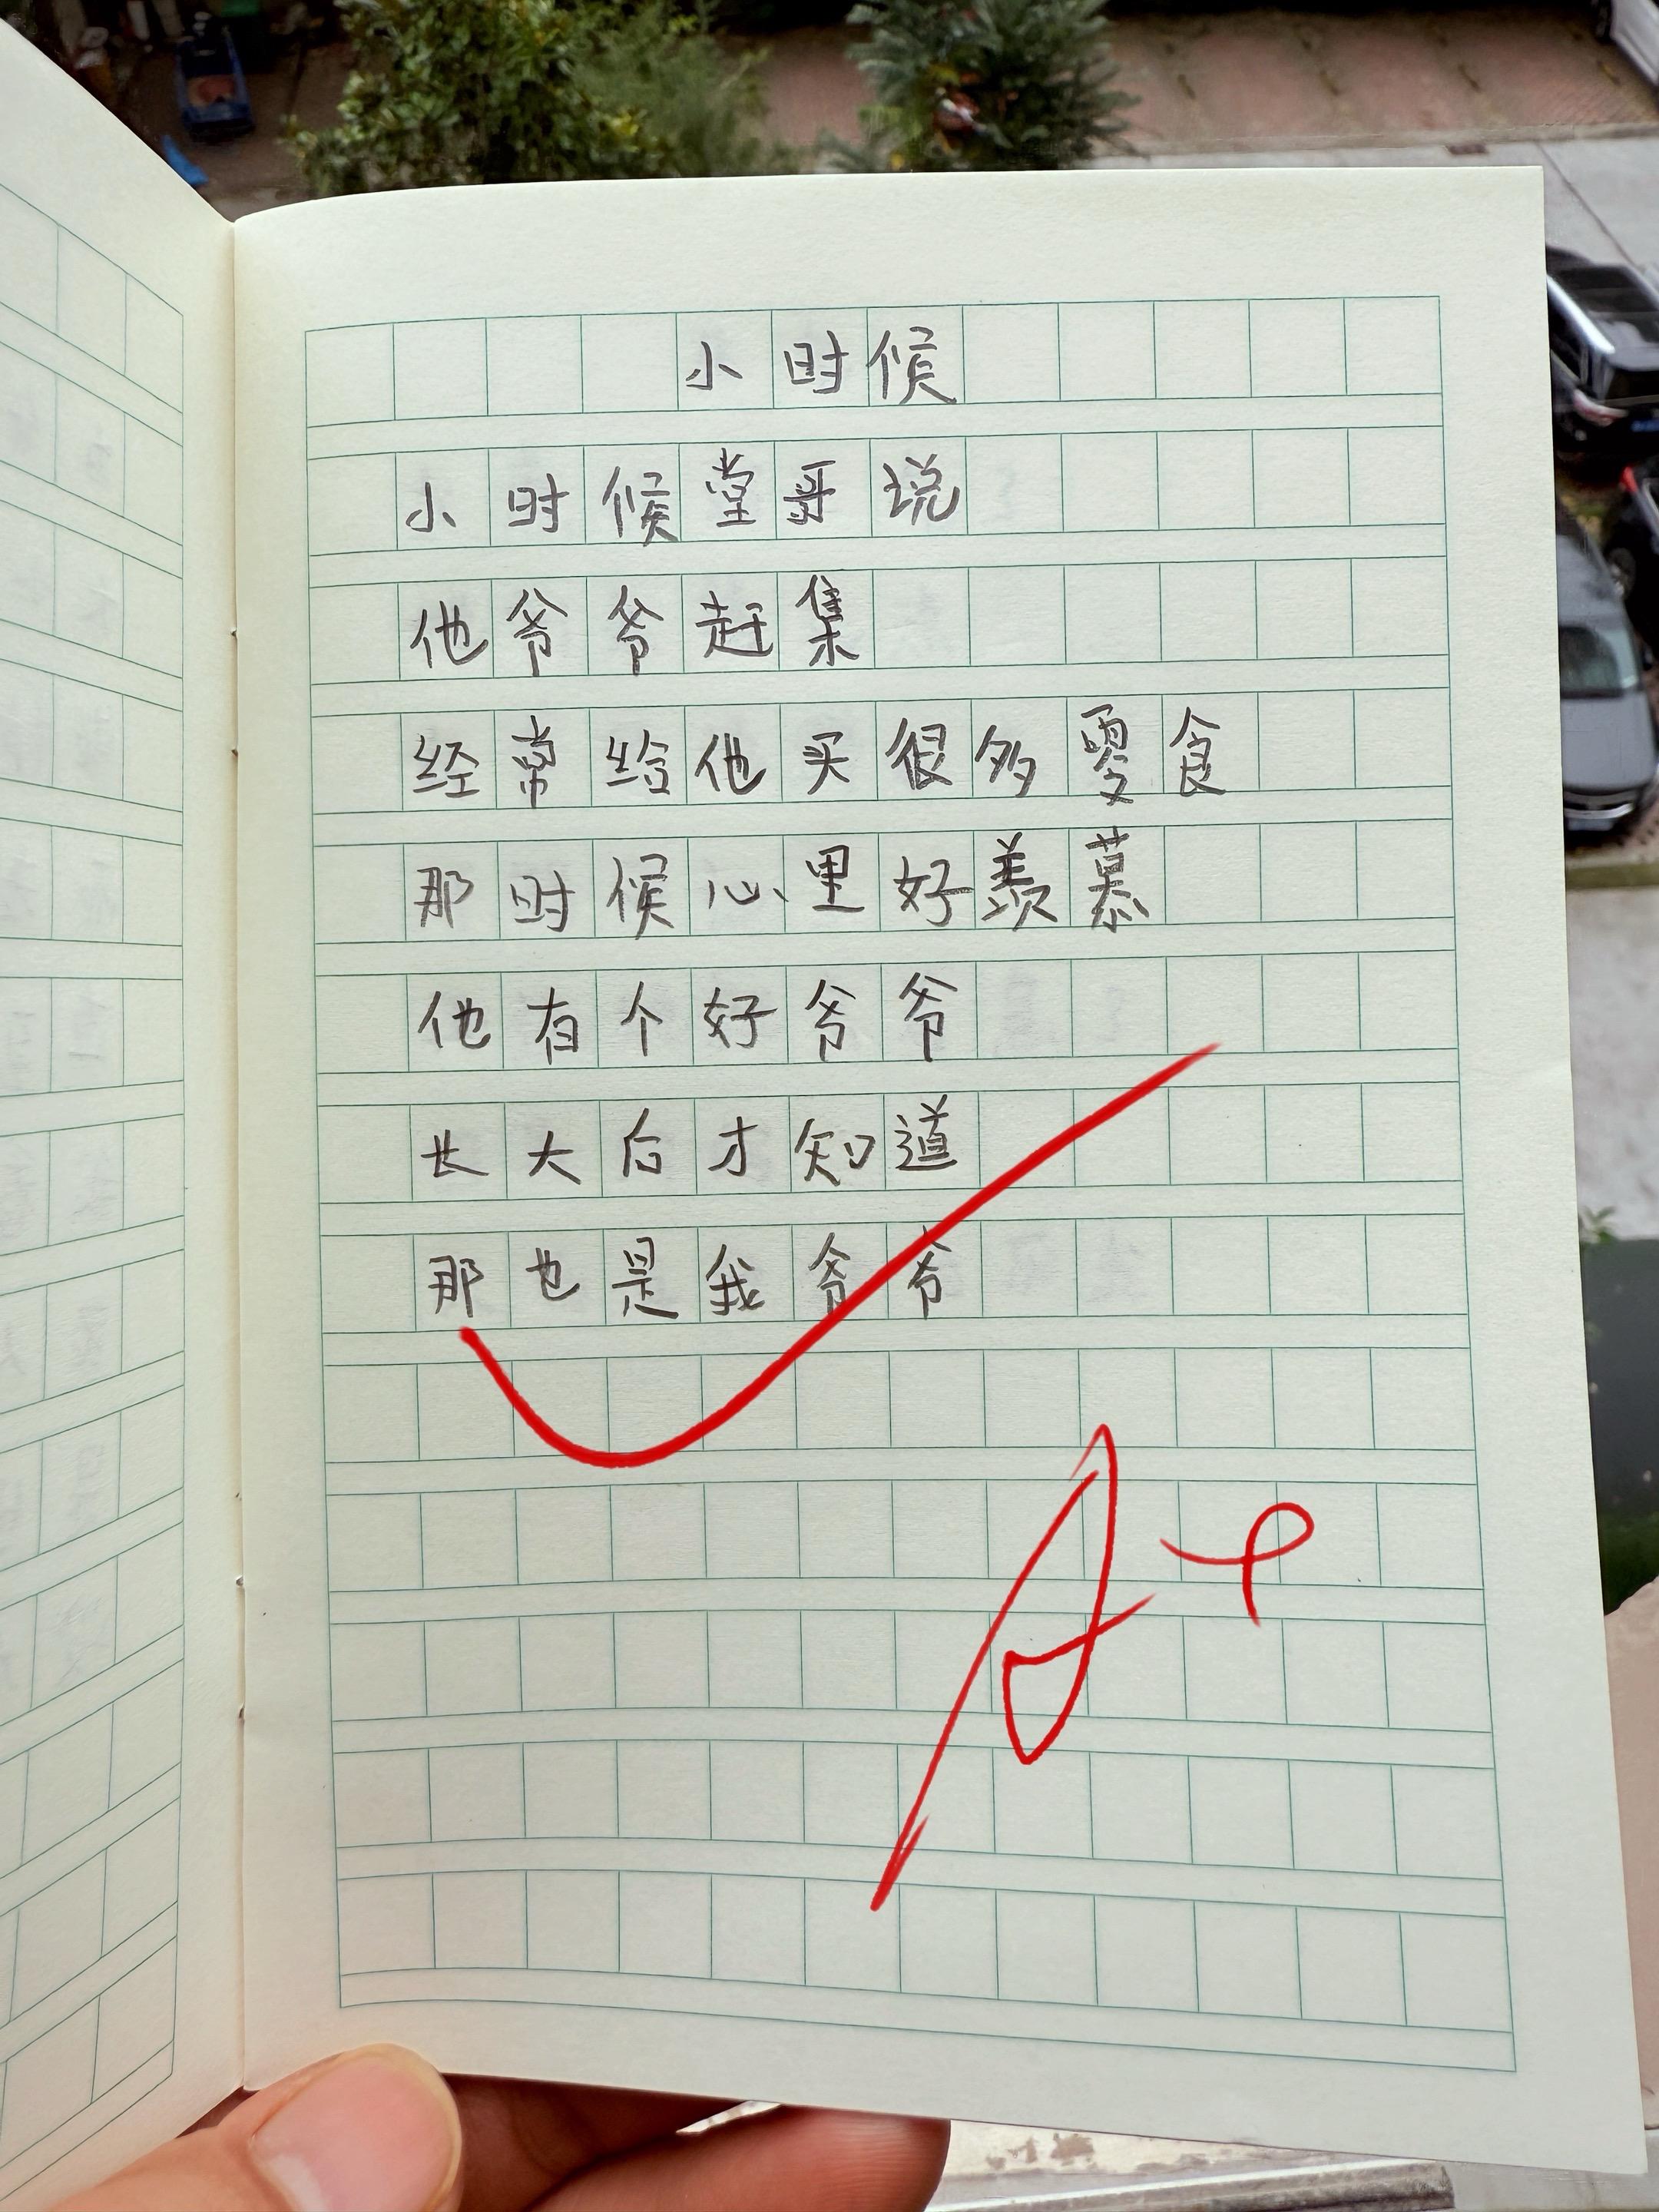 小时候
小时候堂哥说
他爷爷赶集
经常给他买很多零食
那时候心里好羡慕
他有个好爷爷
长大后才知道
那也是我爷爷
A+